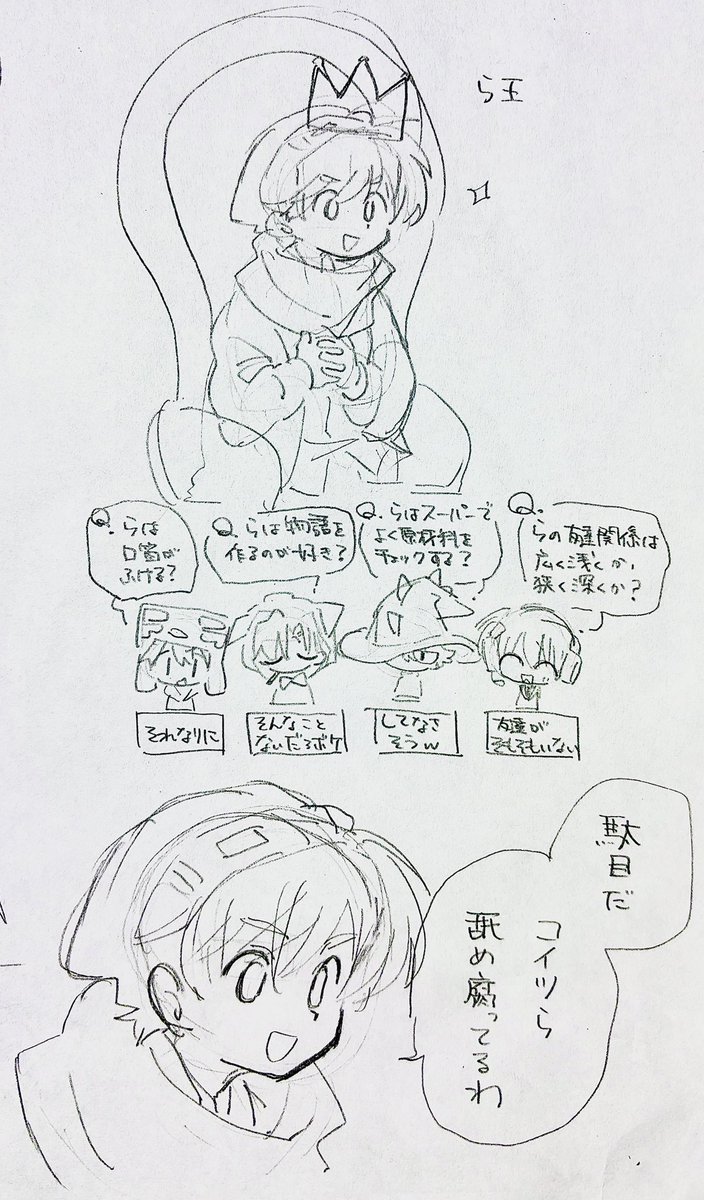 ら王
Q.らは
口笛が
ふける?
Q.らは物語を
作るのが好き?
Q.らはスーパーで
よく原材料を
チェックする?
Q.
らの友達関係は
広く浅くか、
狭く深くか?
それなりに
そんなこと
ないだろボケ
してなさ
そうw
友達が
そもそもいない
駄目だ
コイツら
舐め腐ってるわ